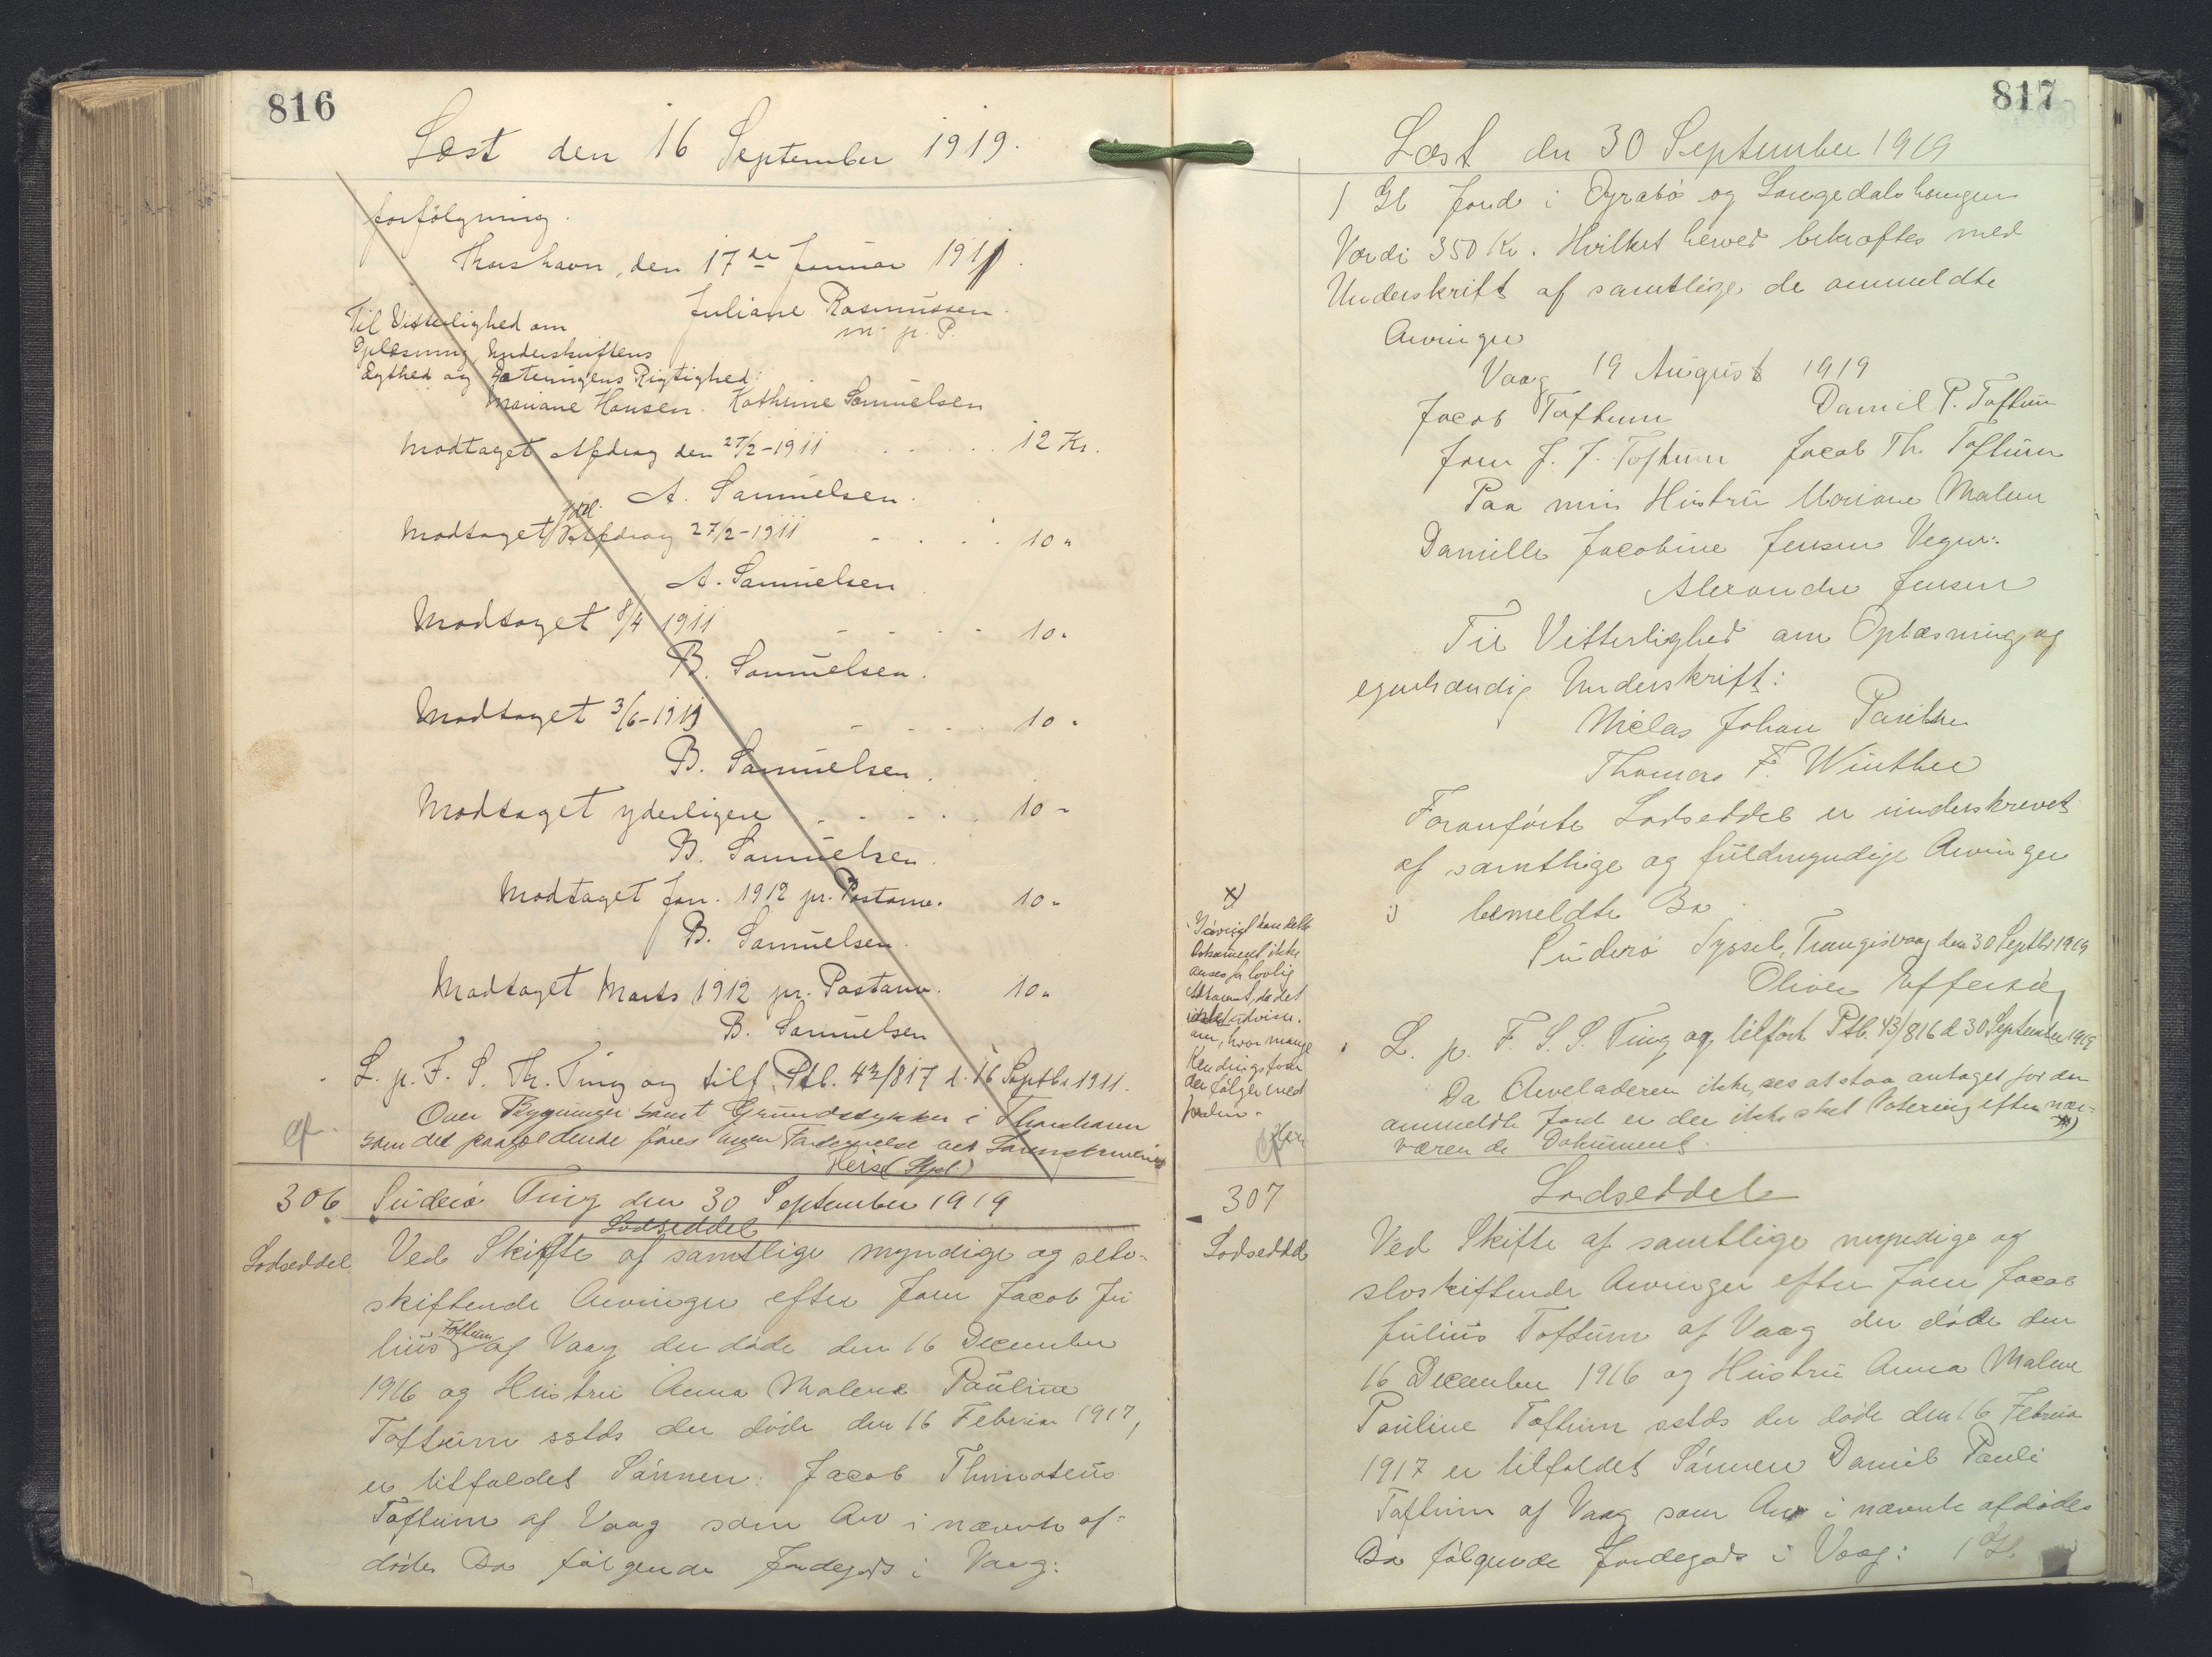 816
Læst den 16 September 1919.
forfölgning.
Thorshavn, den 17de Januar 1911.
Juliane Rasmussen
m. p. P.
Til Vitterlighed om
Oplæsning, Underskriftens
Ægthed og Dateringens Rigtighed:
Mariane Hansen. Kathrine Samuelsen
Modtaget Afdrag den 27/2-1911 . . . . . 12 Kr.
A. Samuelsen.
Modtaget Afdrag 27/2-1911 - . . . 10 "
A. Samuelsen
Modtaget 8/4 1911 - - - - 10 "
B. Samuelsen.
Modtaget 3/6-1911 - - . . 10 "
B. Samuelsen.
Modtaget yderligere . - - . . 10 -
B. Samuelsen.
Modtaget Jan. 1912 pr. Postanv. 10 "
B. Samuelsen.
Modtaget Marts 1912 pr. Postanv. 10 "
B. Samuelsen
L. p. F. S. Th. Ting og tilf. Ptb. 43/817 d. 16 Septbr. 1911.
Over Bygninger samt Grundstykker i Thorshavn
som det paagældende ved Sorenskriveriet
306 Suderö Ting den 30 September 1919
Lodseddel
Lodseddel Ved Skifte af samtlige myndige og selv-
skiftende Arvinger efter Joen Jacob Ju
lius Toftum af Vaag der döde den 16 December
1916 og Hustru Anna Malene Pauline
Toftum sstds der döde den 16 Februar 1917,
er tilfaldet Sönnen: Jacob Thimoteus
Toftum af Vaag som Arv i nævnte af-
dödes Bo fölgende Jordegods i Vaag:
817
Læst den 30 September 1919
1 Gl Jord i Øyrabö og Langedalshaugen
Værdi 350 Kr. Hvilket herved bekræftes med
Underskrift af samtlige de anmeldte
Arvinger
Vaag 19 August 1919
Jacob Toftum Daniel P. Toftum
Joen J. J. Toftum Jacob Th. Toftum
Paa min Hustru Mariane Malene
Danielle Jacobine Jensen Vegne:
Alexander Jensen
Til Vitterlighed om Oplæsning og
egenhændig Underskrift:
Niclas Johan Poulsen
Thomas F. Winther
Foranförte Lodseddel er underskrevet
af samtlige og fuldmyndige Arvinger
i bemeldte Bo.
Suderö Syssel, Trangisvaag den 30 Septbr 1919
Oliver Effersöe
L. p. F. S. S. Ting og tilfört Ptb. 43/816 d. 30 September 1919
Da Arveladeren ikke ses at staa antaget for den
anmeldte Jord er der ikke sket Notering efter nær-
værende Dokument. x)
x)
Iövrigt kan dette
Dokument ikke
anses for lovlig
da det
ikke udviser
om, hvor mange
der fölger med
Jorden.
307
Lodseddel
Lodseddel
Ved Skifte af samtlige myndige og
slvskiftende Arvinger efter Joen Jacob
Julius Toftum af Vaag der döde den
16 December 1916 og Hustru Anna Malene
Pauline Toftum sstds der döde den 16 Februar
1917 er tilfaldet Sönnen Daniel Pauli
Toftum af Vaag som Arv i nævnte afdödes
Bo fölgende Jordegods i Vaag: 1 Gl.